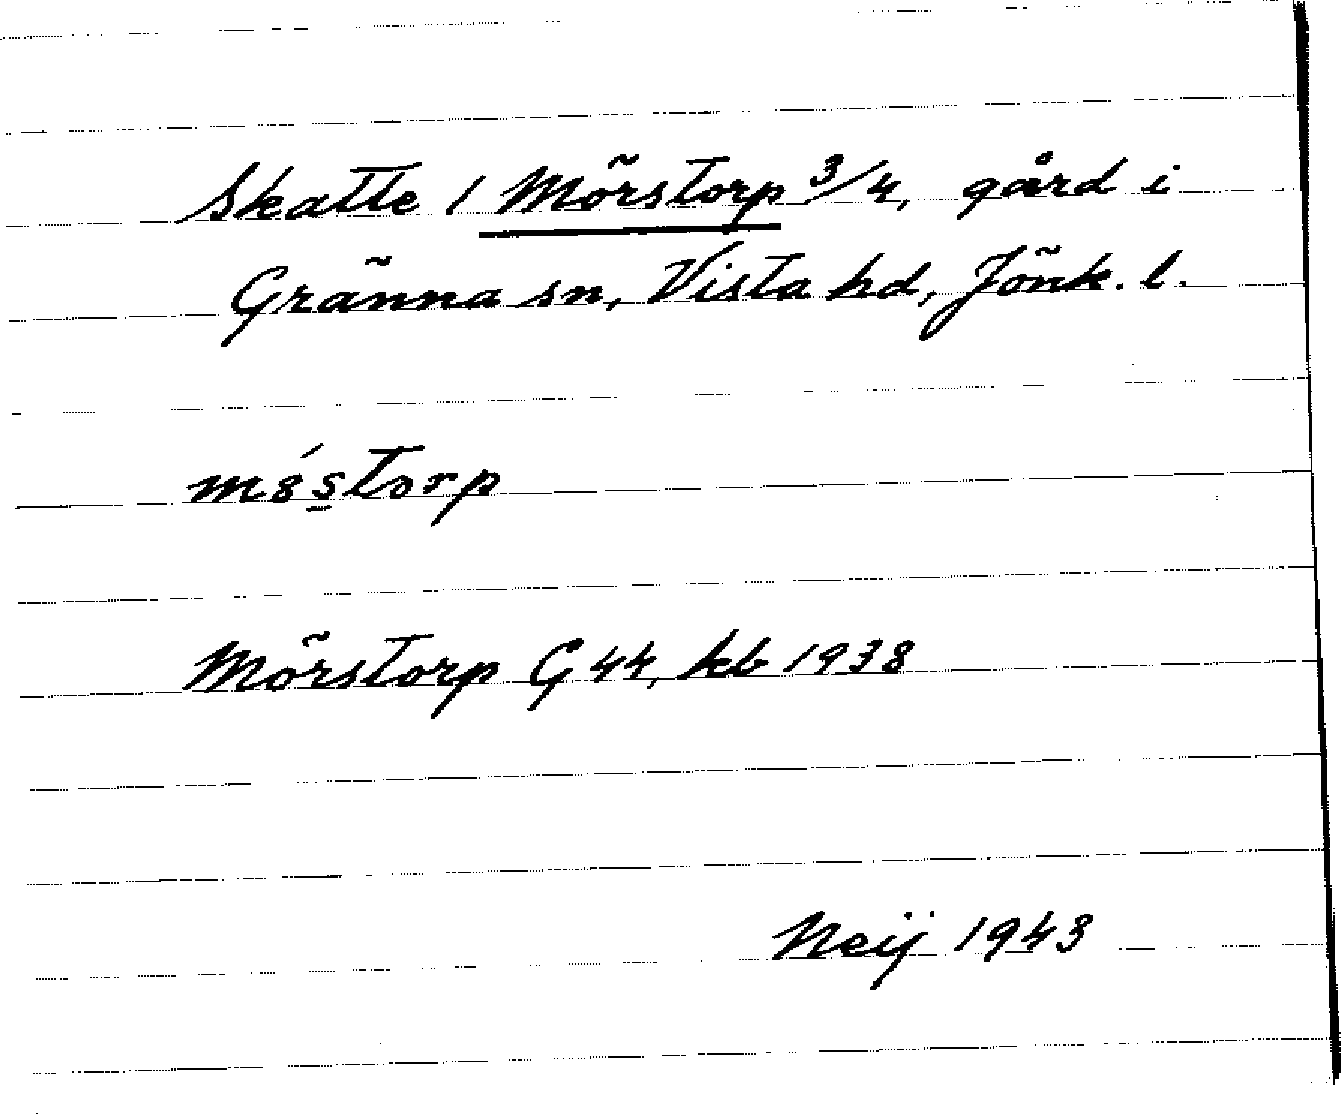 Skatte 1 Mörstorp 3/4, gård i
Gränna sn, Vista hd, Jönk. l.
storp
Mörstorp G 44, kb 1938
Neij 1943